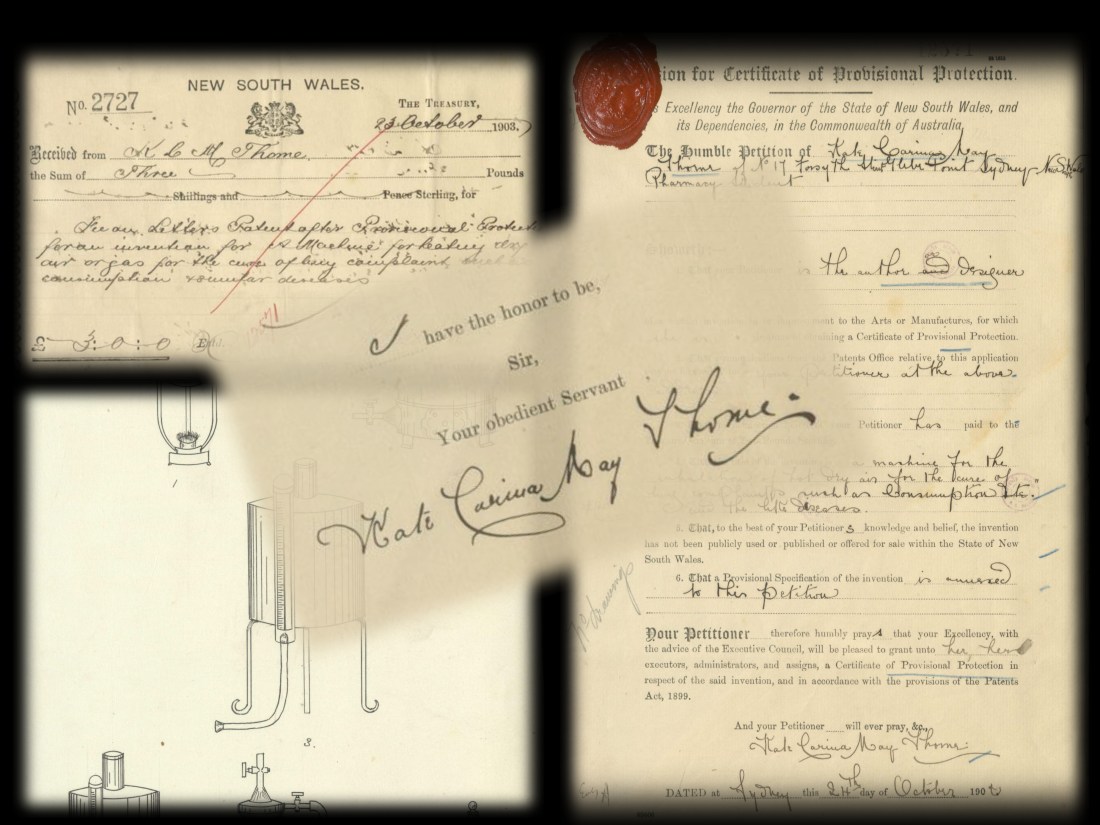 NEW SOUTH WALES.
No. 2727
THE TREASURY,
23 October 1903.
Received from K C M Thorne
the Sum of Three Pounds
Shillings and Pence Sterling, for
Fee on Letters Patent after Provisional
for an invention for "A Machine for heating dry
air or gas for the cure of lung complaint
consumption similar diseases
£ 3: 0: 0
I have the honor to be,
Sir,
Your obedient Servant
Kate Carina May Thorne.
3.
ion for Certificate of Provisional Protection.
s Excellency the Governor of the State of New South Wales, and
its Dependencies, in the Commonwealth of Australia,
The Humble Petition of Kate Carina May
Thorne of No 17, Forsyth Street Glebe Point Sydney
Pharmacy
the author and Designer
nt to the Arts or Manufactures, for which
ing a Certificate of Provisional Protection.
Patents Office relative to this application
petitioner at the above.
Petitioner has paid to the
a machine for the
dry air for the cure of
such as Consumption Etc."
the like diseases.
5. That, to the best of your Petitioner s knowledge and belief, the invention
has not been publicly used or published or offered for sale within the State of New
South Wales.
6. That a Provisional Specification of the invention is annexed
to this petition
No drawings
Your Petitioner therefore humbly prays that your Excellency, with
the advice of the Executive Council, will be pleased to grant unto her, her
executors, administrators, and assigns, a Certificate of Provisional Protection in
respect of the said invention, and in accordance with the provisions of the Patents
Act, 1899.
And your Petitioner will ever pray, &c.,
Kate Carina May Thorne.
DATED at Sydney this 24th day of October 1902